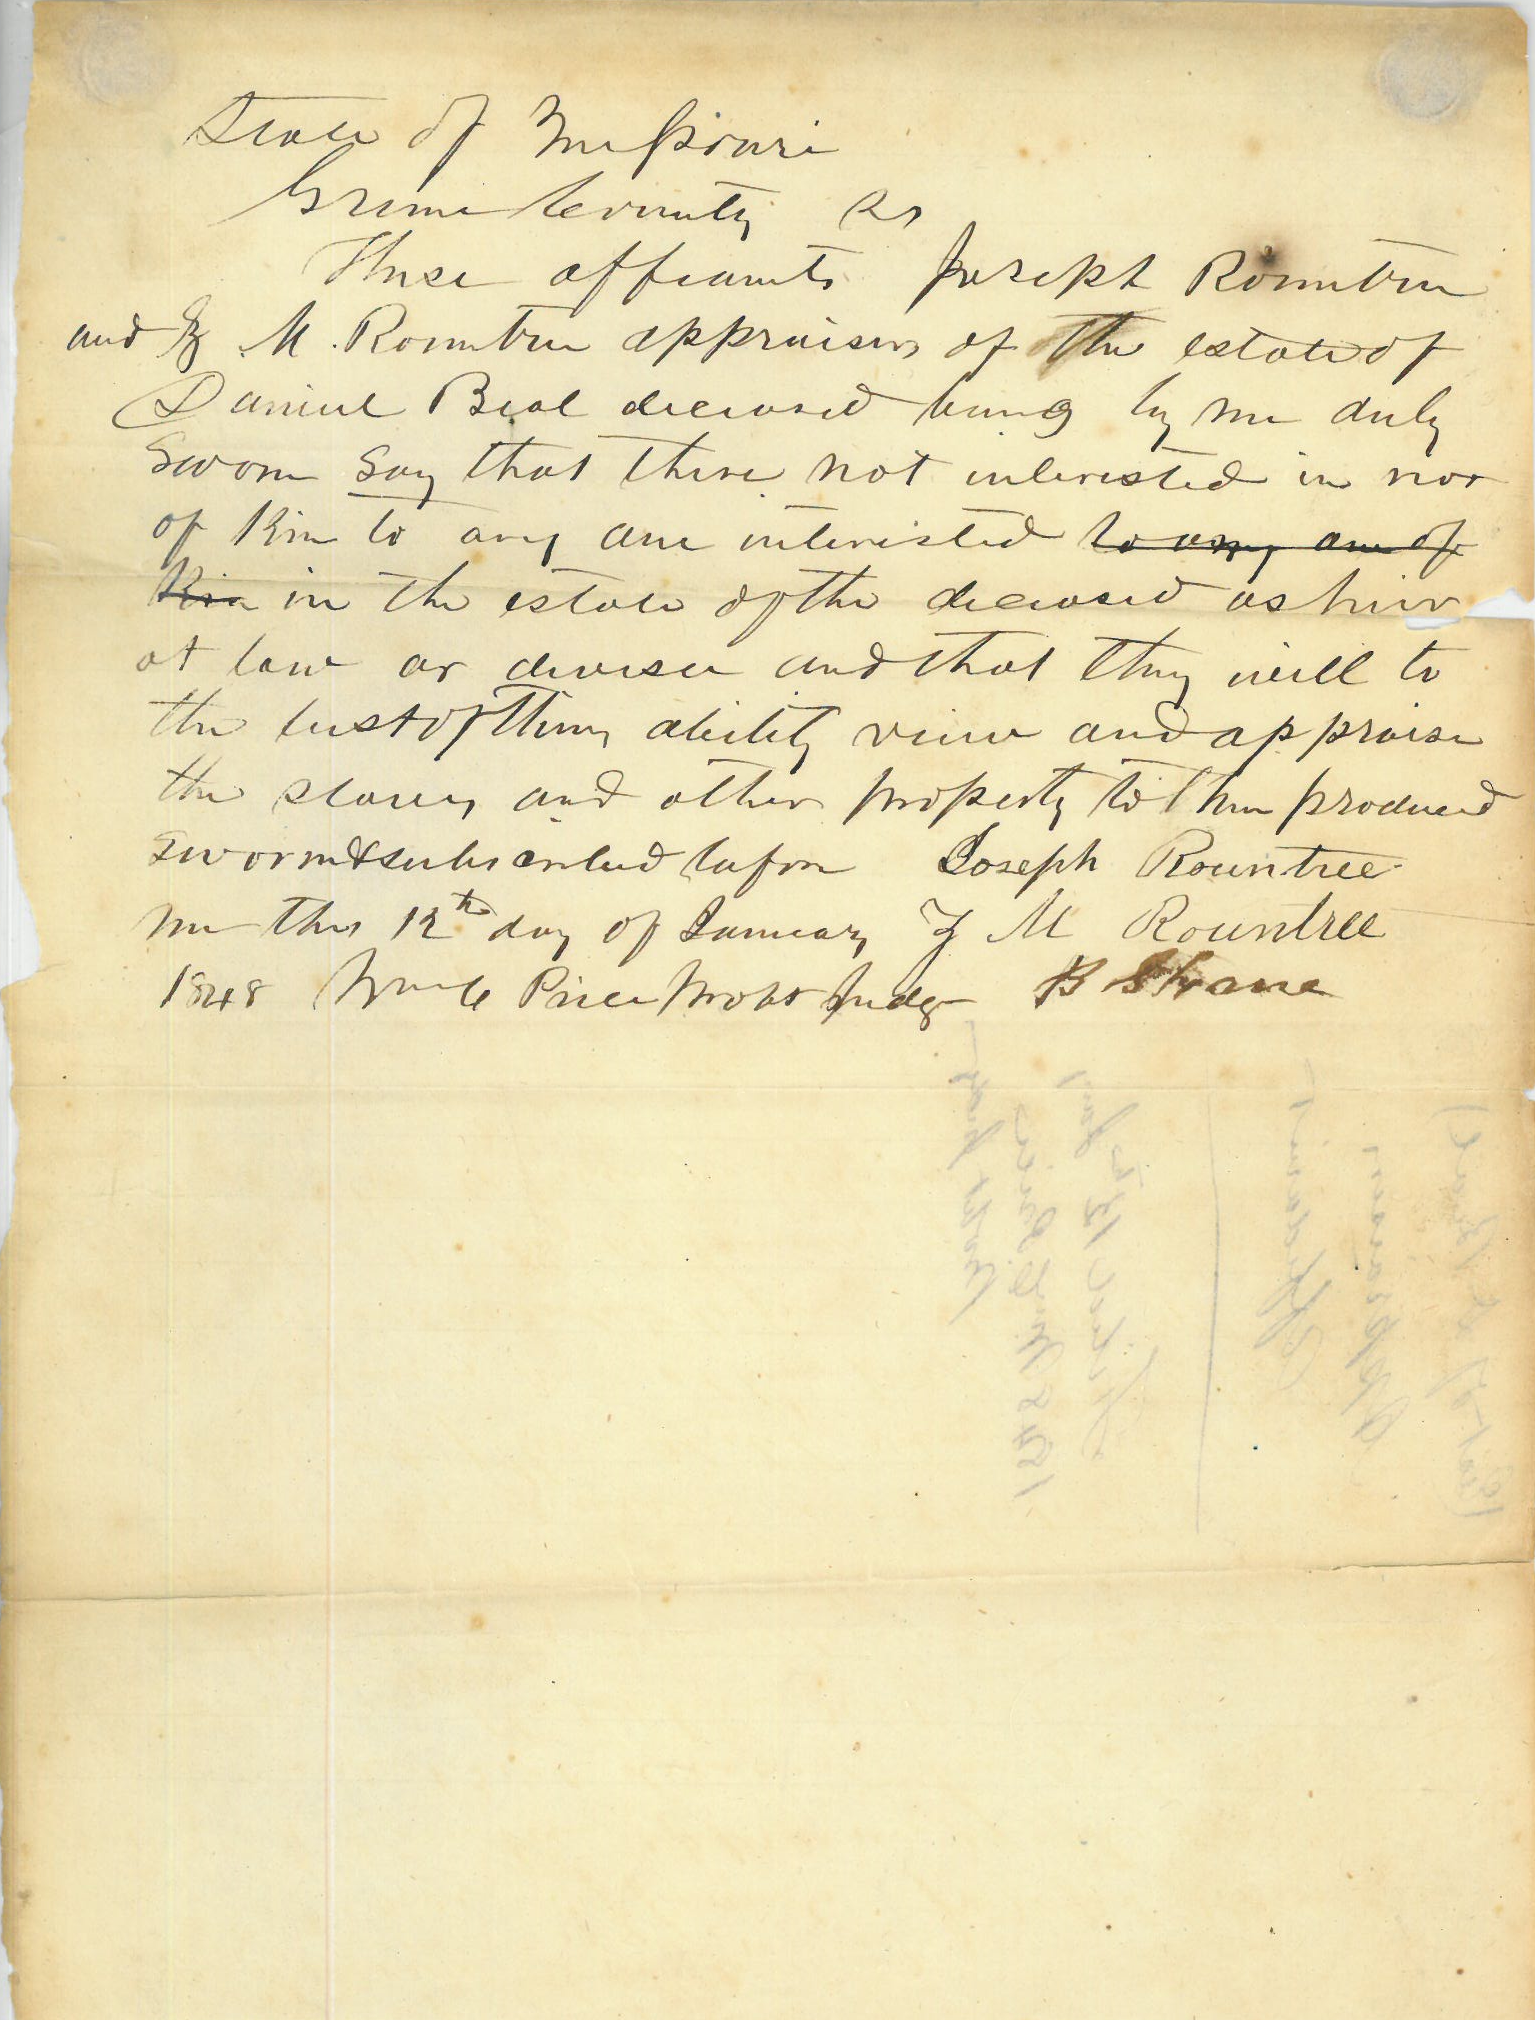 State of Missouri
Greene County ss
These affiants Joseph Rountree
and Z M. Rountree appraisers of the estate of
Daniel Beal deceased being by me duly
Sworn Say that there not interested in nor
of Kin to any one interested to any one of
Kin in the estate of the deceased as heir
at law or devisee and that they will to
the best of their ability view and appraise
the slaves and other property to them produced
Sworn & subscribed before Joseph Rountree
me this 12th day of January Z M Rountree
1848 Price Probt Judge B